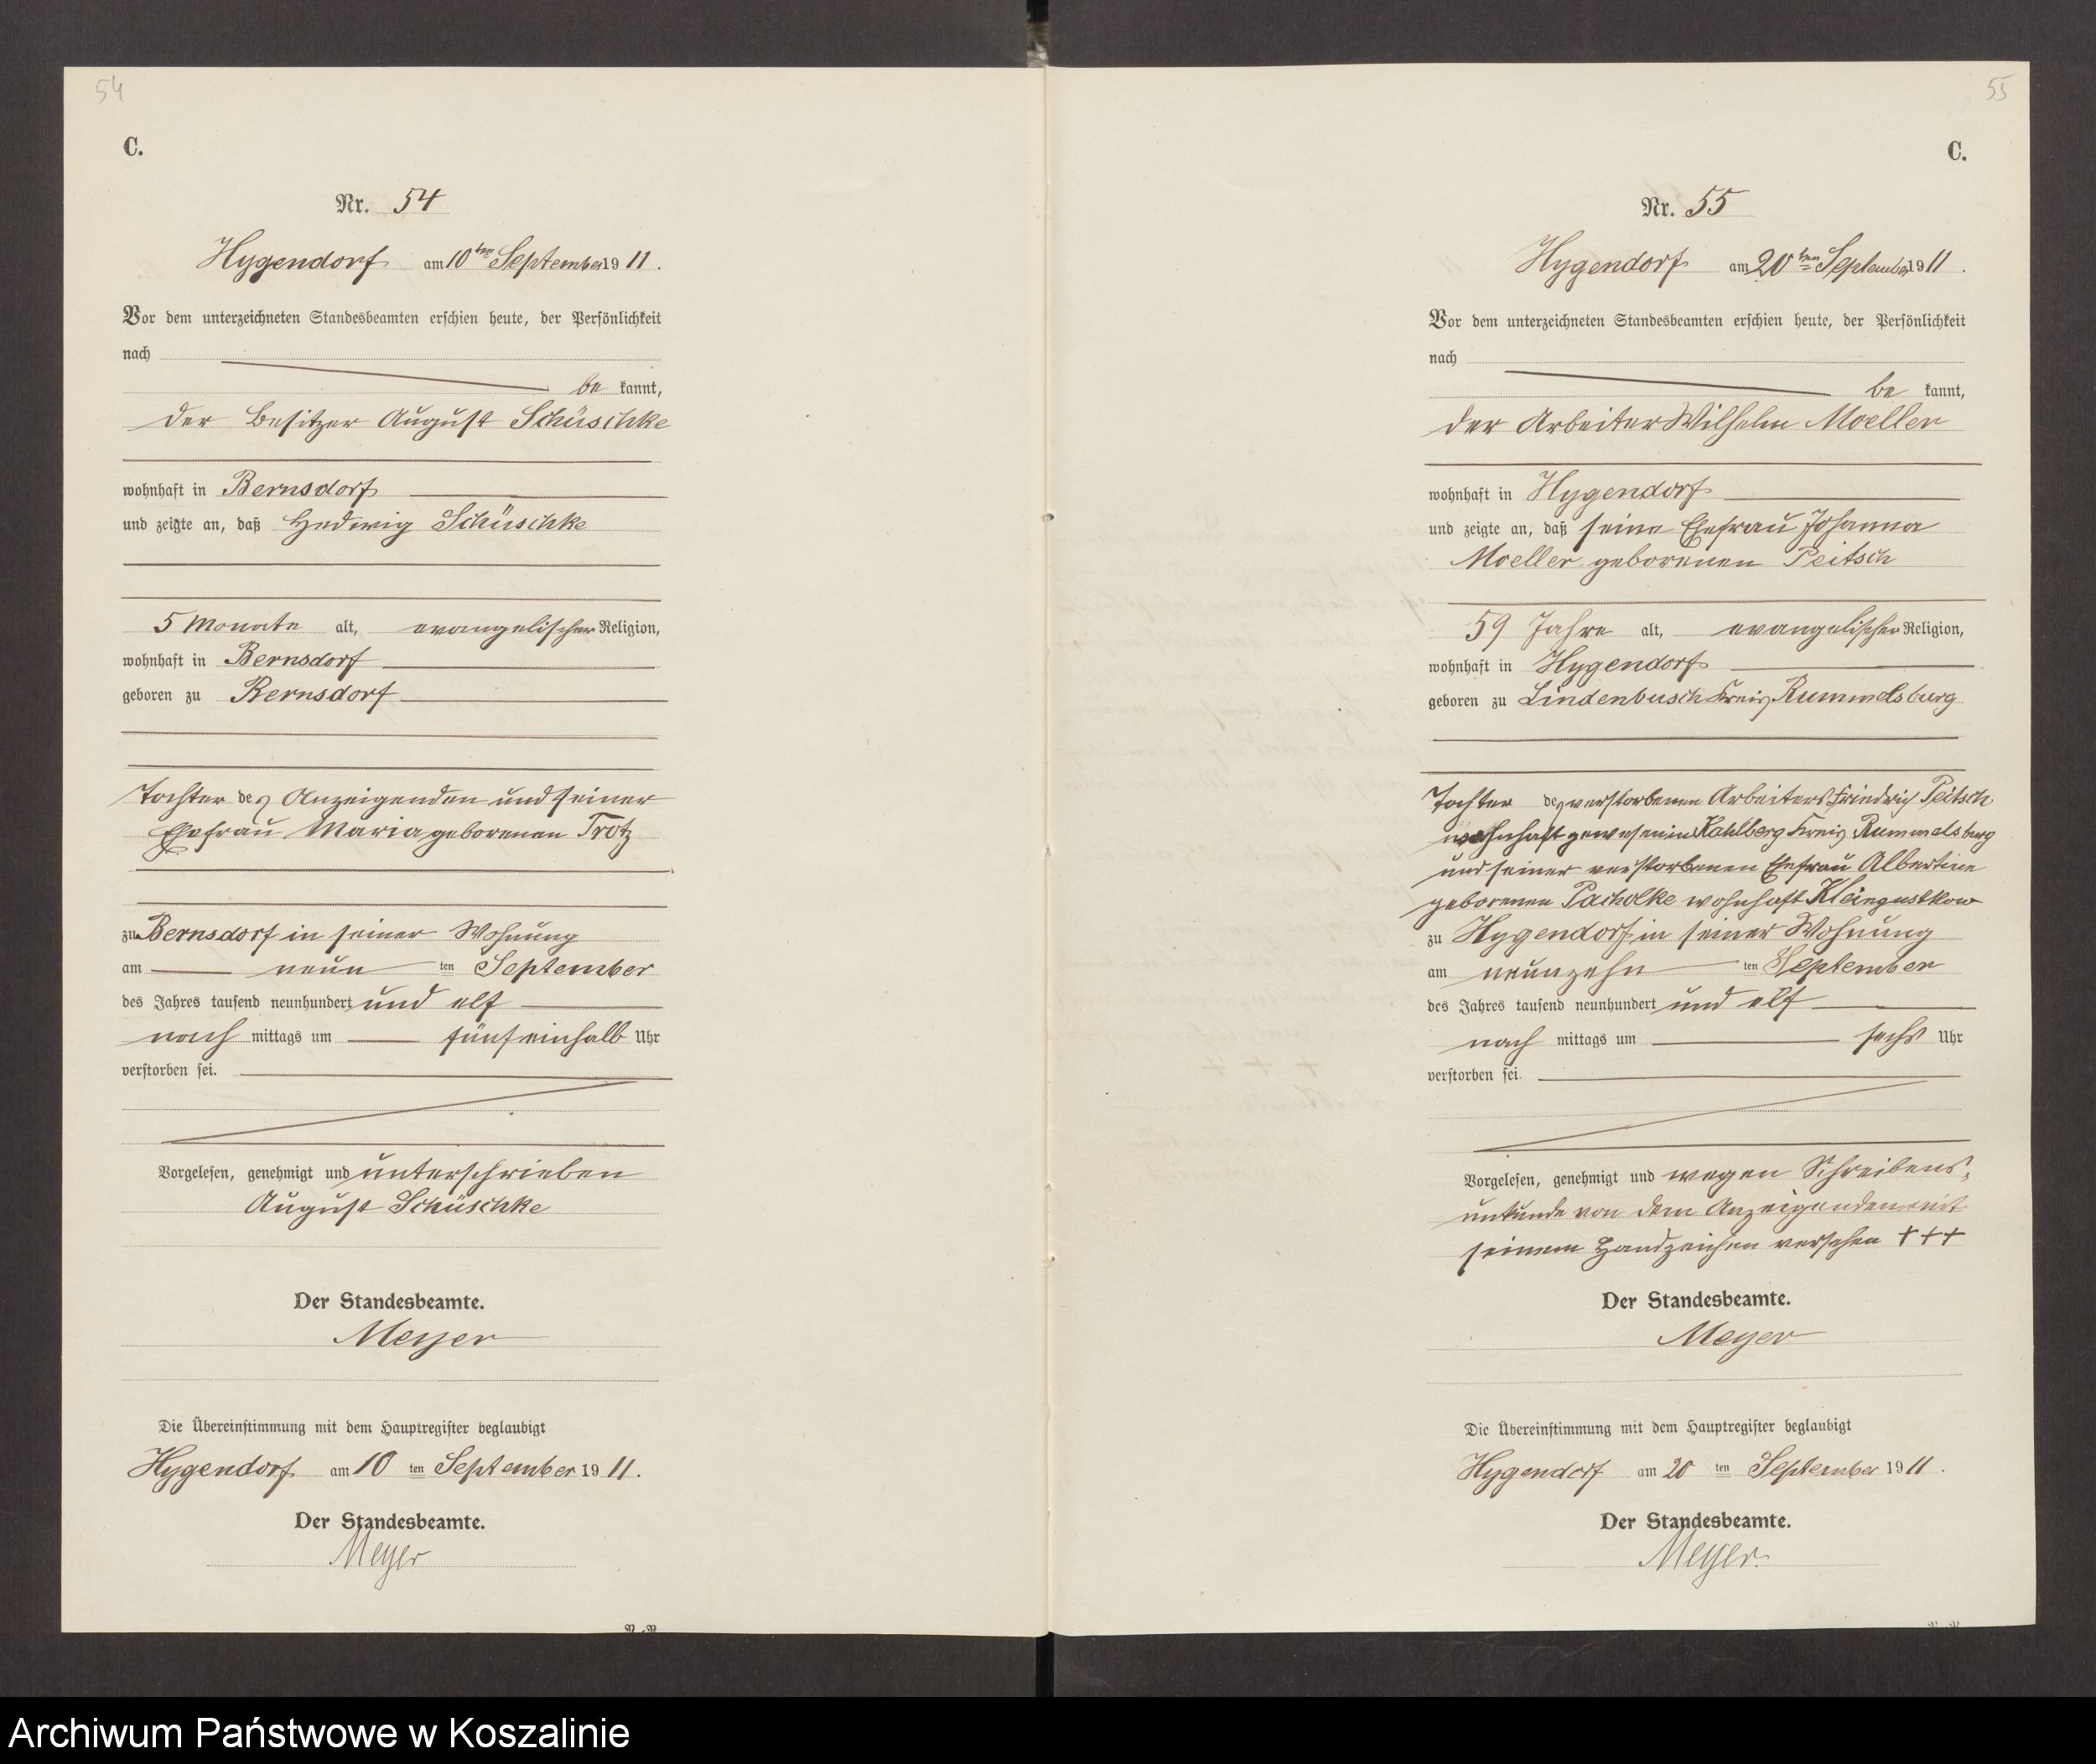 54
C.
Nr. 54
Hygendorf am 10ten September 1911.
Vor dem unterzeichneten Standesbeamten erschien heute, der Persönlichkeit
nach
be kannt,
der Besitzer August Schüschke
wohnhaft in Bernsdorf
und zeigte an, daß Hedwig Schüschke
5 Monate alt, evangelischer Religion,
wohnhaft in Bernsdorf
geboren zu Bernsdorf
Tochter des Anzeigenden und seiner
Ehefrau Maria geborenen Trotz
zu Bernsdorf in seiner Wohnung
am neun ten September
des Jahres tausend neunhundert und elf
nach mittags um fünfeinhalb Uhr
verstorben sei.
Vorgelesen, genehmigt und unterschrieben
August Schüschke
Der Standesbeamte.
Meyer
Die Übereinstimmung mit dem Hauptregister beglaubigt
Hygendorf am 10 ten September 1911.
Der Standesbeamte.
Meyer
55
C.
Nr. 55
Hygendorf am 20ten September 1911.
Vor dem unterzeichneten Standesbeamten erschien heute, der Persönlichkeit
nach
be kannt,
der Arbeiter Wilhelm Moeller
wohnhaft in Hygendorf
und zeigte an, daß seine Ehefrau Johanna
Moeller geborenen Peitsch
59 Jahre alt, evangelischer Religion,
wohnhaft in Hygendorf
geboren zu Lindenbusch Kreis Rummelsburg
Tochter des verstorbenen Arbeiters Friedrich Peitsch
wohnhaft gewesen in Kahlberg Kreis Rummelsburg
und seiner verstorbenen Ehefrau Albertine
geborenen Pacholke wohnhaft Kleingustkow
zu Hygendorf in seiner Wohnung
am neunzehn ten September
des Jahres tausend neunhundert und elf
nach mittags um sechs Uhr
verstorben sei.
Vorgelesen, genehmigt und wegen Schreibens-
unkunde von dem Anzeigenden mit
seinem Handzeichen versehen +++
Der Standesbeamte.
Meyer
Die Übereinstimmung mit dem Hauptregister beglaubigt
Hygendorf am 20 ten September 1911.
Der Standesbeamte.
Meyer.
Archiwum Państwowe w Koszalinie